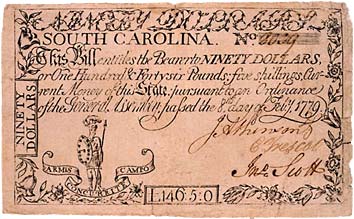 NINETY DOLLARS
SOUTH CAROLINA. No.
This Bill entitles the Bearer to NINETY DOLLARS,
or One Hundred & Forty six Pounds, five shillings, Cur-
rent Money of this State, pursuant to an Ordinance
of the General Assembly, passed the 8th day of Feby. 1779.
NINETY
DOLLARS
Jno. Scott
ARMIS
CONCURRITE
CAMPO
L.146:5:0